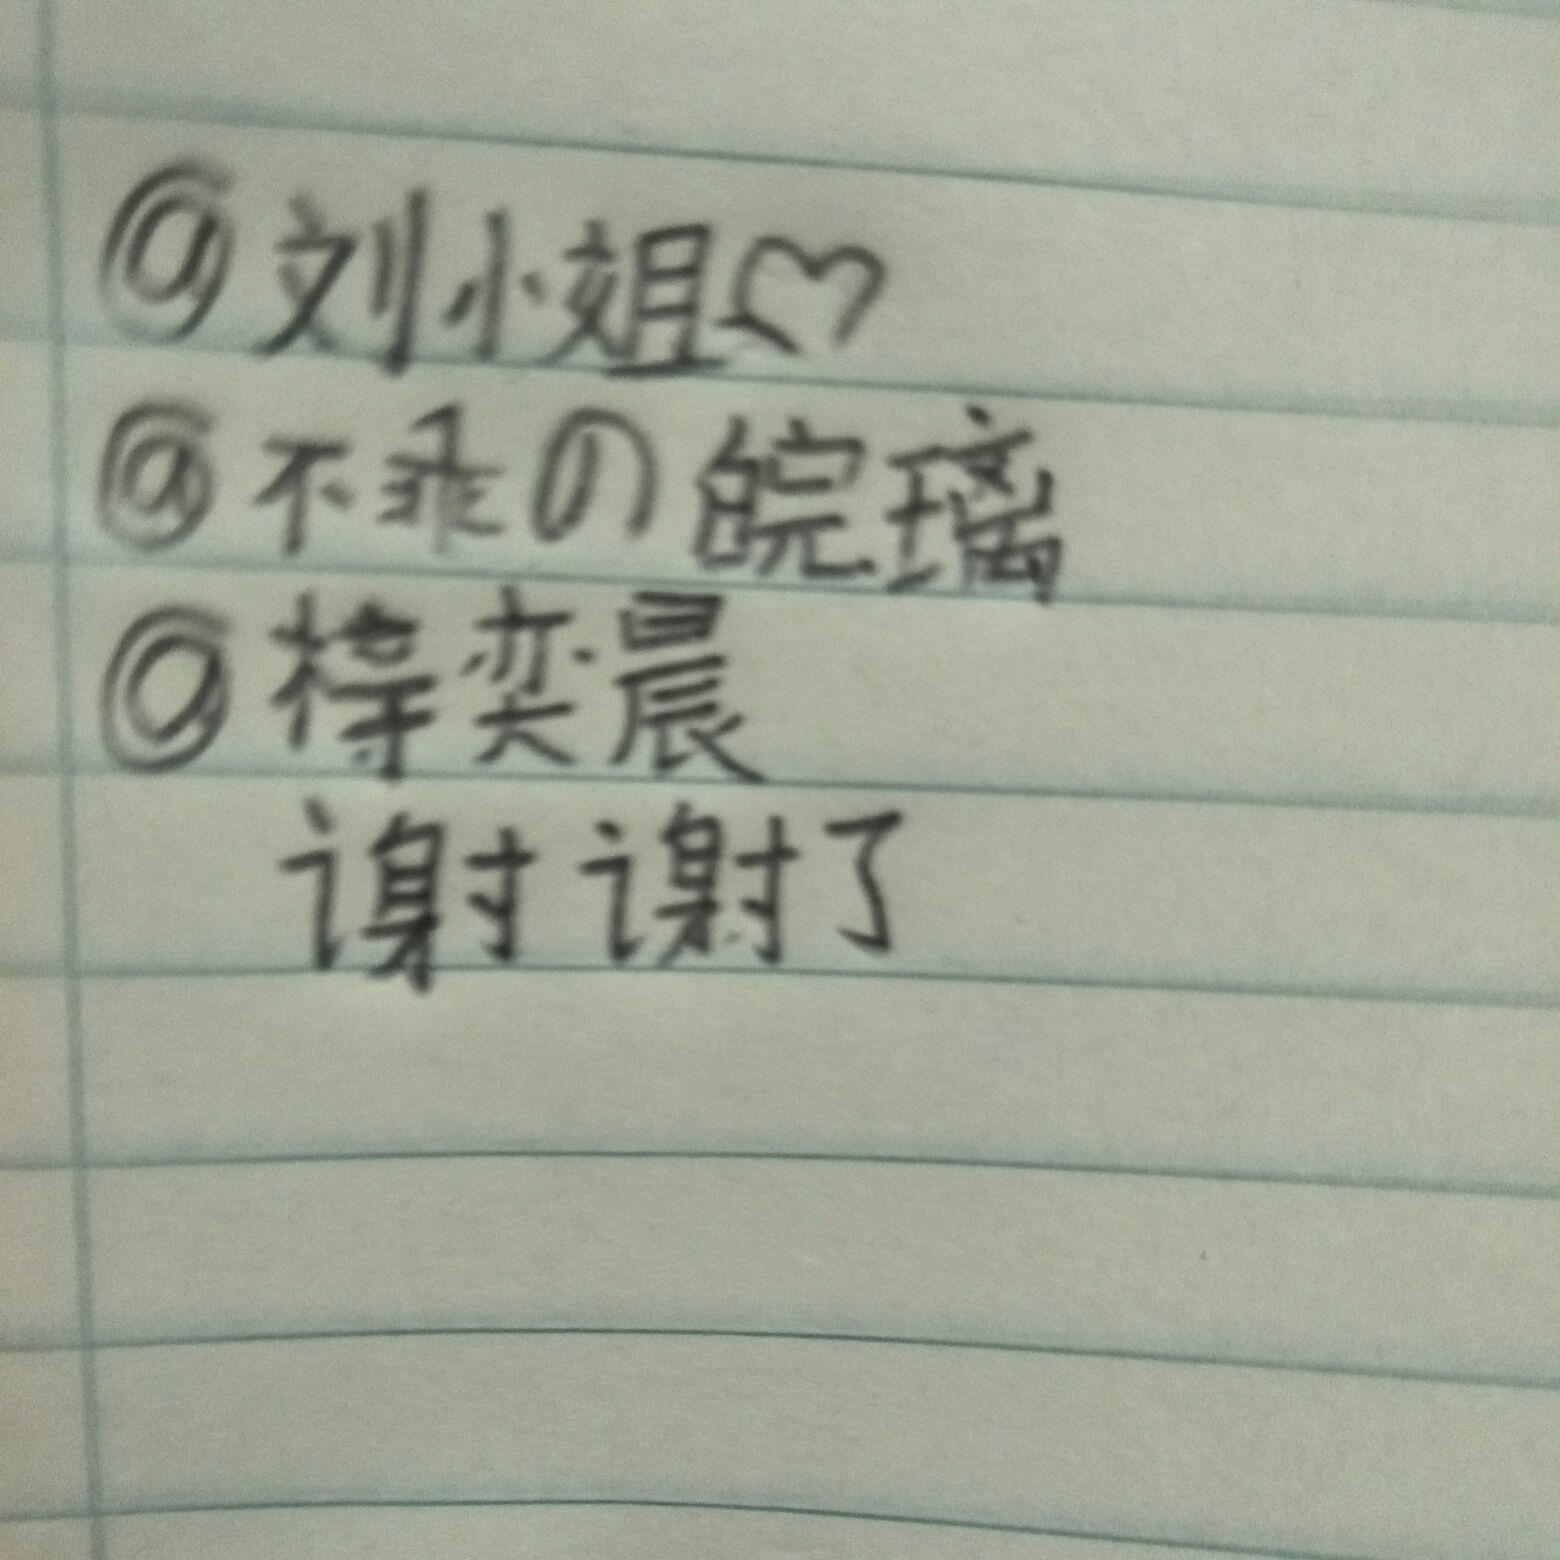 @刘小姐♡
@不乖の皖璃
@梓奕晨
谢谢了